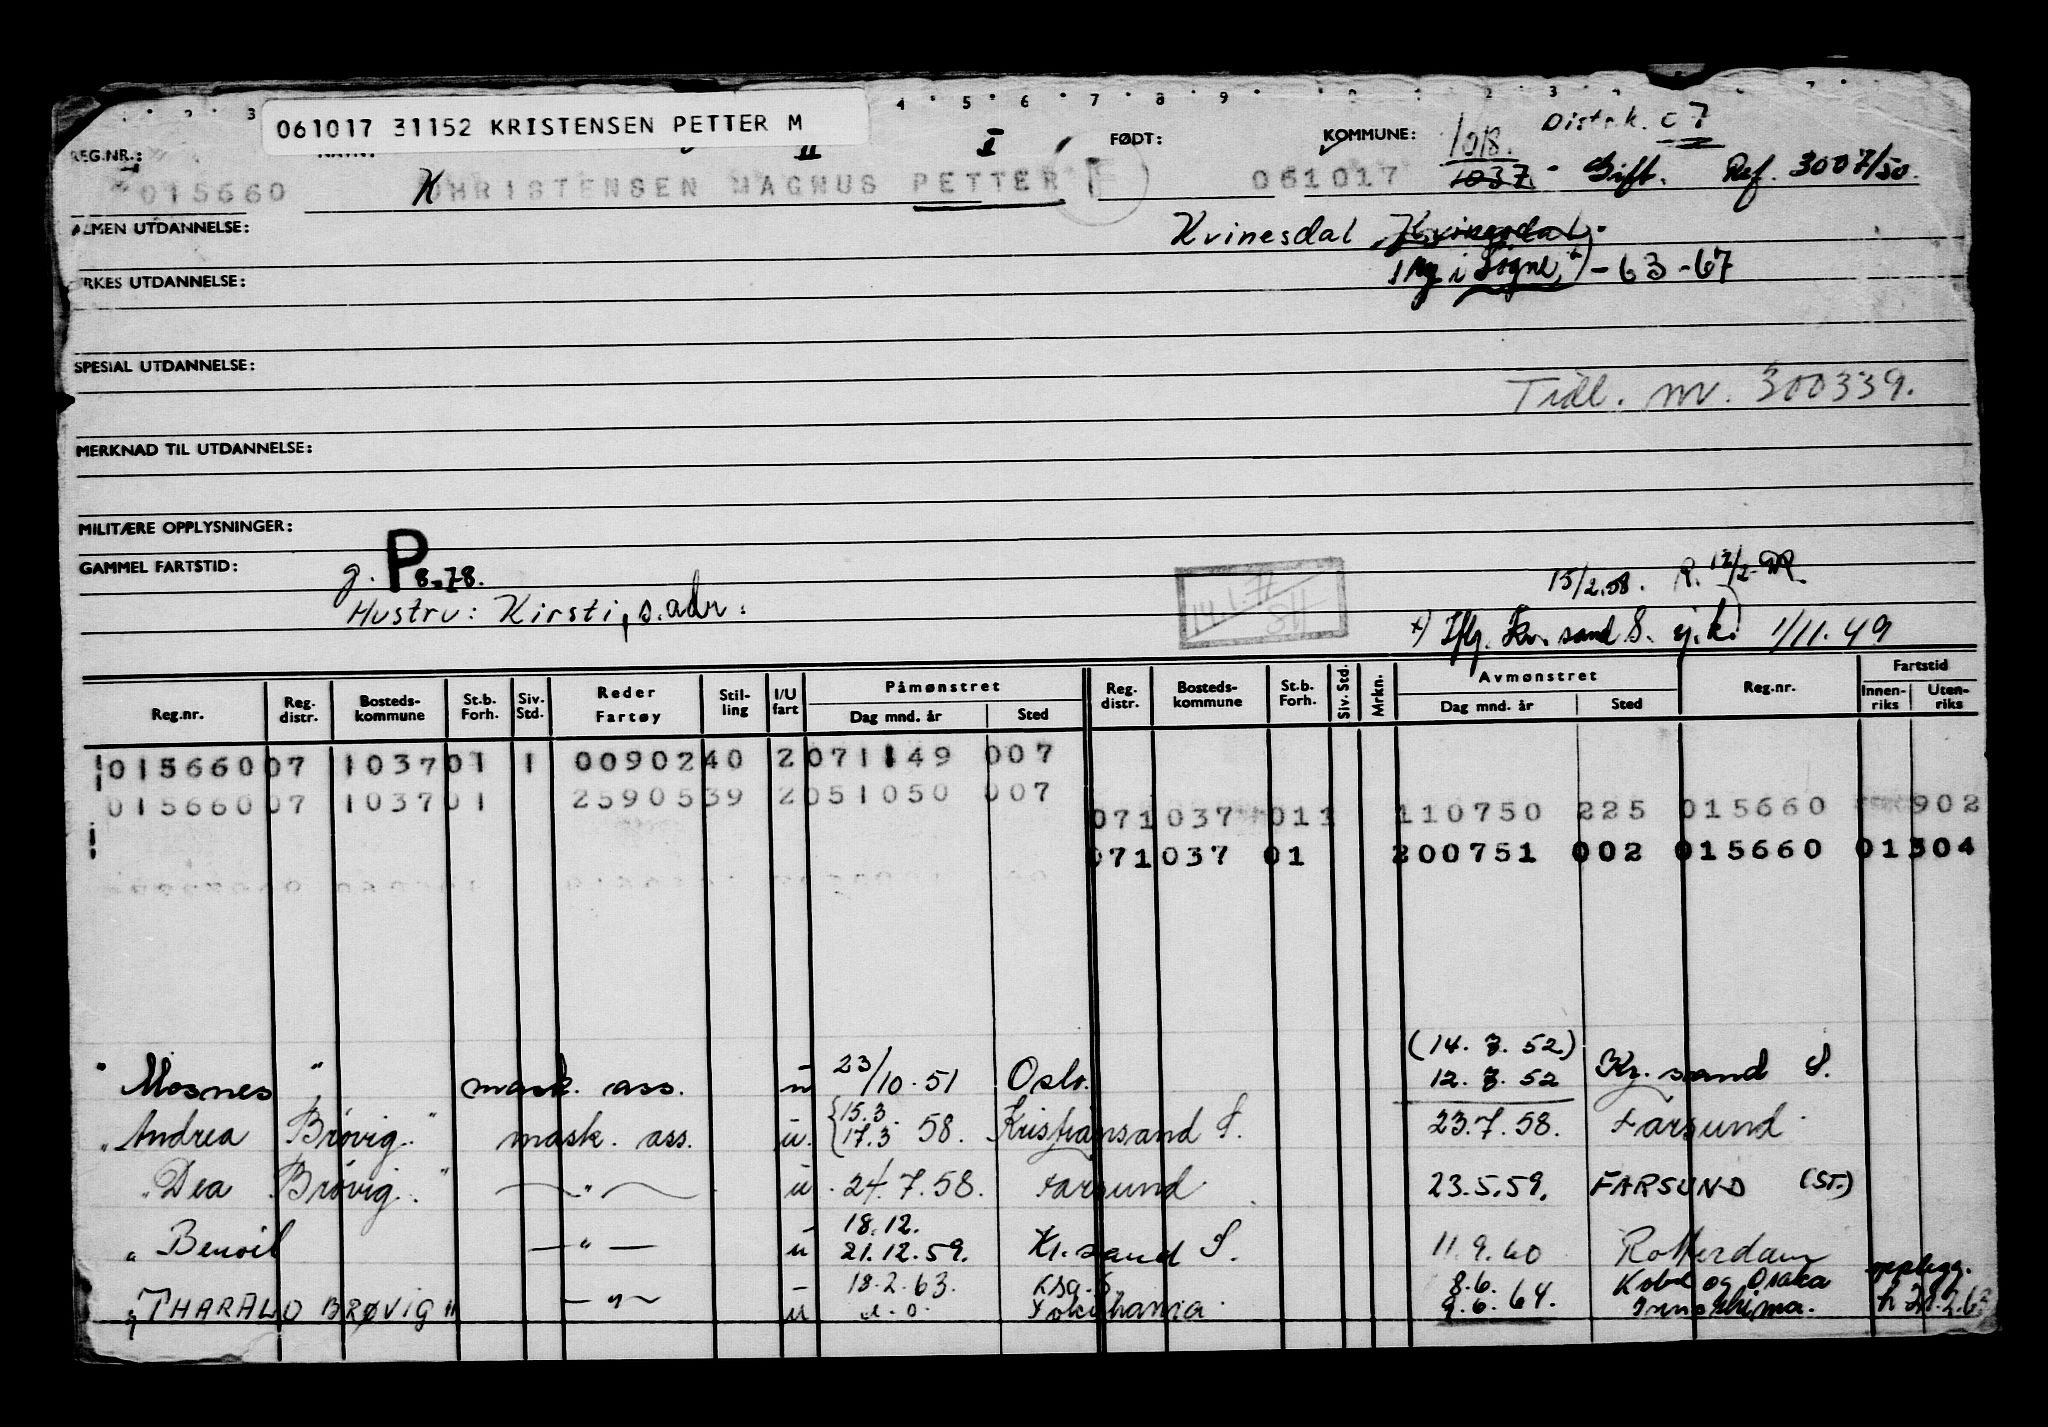 061017 31152 KRISTENSEN PETTER M
4 5 6 7 8 9
II I FØDT: KOMMUNE: 1018. Distrk. 07
REG.NR.: 1037 - Gift. Ref. 3007/50.
015660 K HRISTENSEN MAGNUS PETTER F 061017
ALMEN UTDANNELSE: Kvinesdal Kvinesdal.
YRKES UTDANNELSE: i Søgne - 63 - 67
SPESIAL UTDANNELSE:
Tidl. nr. 300339.
MERKNAD TIL UTDANNELSE:
MILITÆRE OPPLYSNINGER:
GAMMEL FARTSTID: g. P 8-78. 15/2.58. R. 12/2
Hustru: Kirsti, s.adr:
x) Iflg. Kr. sand S. 1/11.49
Reg.nr. Reg. distr. Bosteds-kommune St.b. Forh. Siv. Std. Reder Fartøy Stil-ling I/U fart Påmønstret Dag mnd. år Sted Reg. distr. Bosteds-kommune St.b. Forh. Siv. Std. Mrkn. Avmønstret Dag mnd. år Sted Reg.nr. Fartstid Innen-riks Uten-riks
015660 07 1037 01 1 00902 40 2 071149 007
015660 07 1037 01 25905 39 2 051050 007
07 1037 011 110750 225 015660 902
07 1037 01 200751 002 015660 01304
" Mosnes " mask. ass. u 23/10.51 Oslo. (14.7.52) 12.7.52 Kr.sand S.
" Andrea Brøvig." mask. ass. u. {15.3. 17.3 58. Kristiansand S. 23.7.58. Farsund
" Dea Brøvig. " — " — u 24.7.58. Farsund 23.5.59. FARSUND (ST.)
" Benoil — " — u 18.12. 21.12.59. Kr.sand S. 11.9.60 Rotterdam
" THARALD BRØVIG " — " — u 18.2.63. Yokohama. 8.6. 9.6.64. Kobe og Osaka Innoshima.